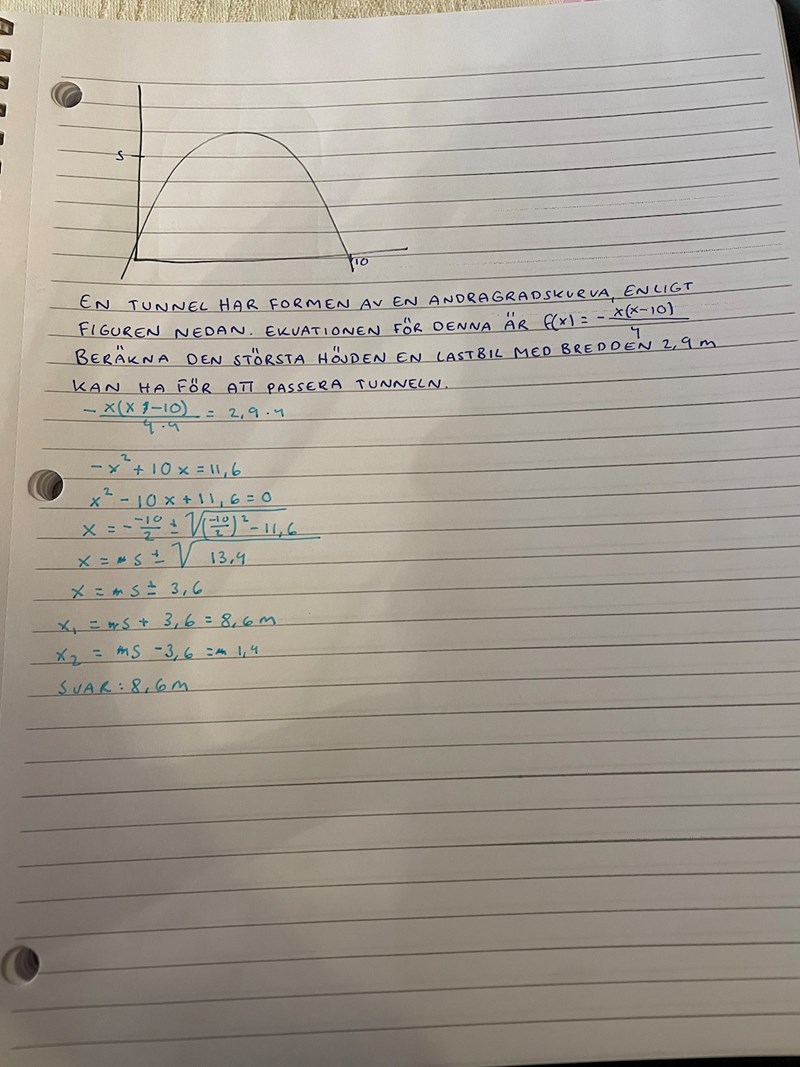 5
10
EN TUNNEL HAR FORMEN AV EN ANDRAGRADSKURVA, ENLIGT
FIGUREN NEDAN. EKVATIONEN FÖR DENNA ÄR f(x) = -x(x-10)/4
BERÄKNA DEN STÖRSTA HÖJDEN EN LASTBIL MED BREDDEN 2,9 m
KAN HA FÖR ATT PASSERA TUNNELN.
-x(x-10)/4·4 = 2,9·4
-x² + 10x = 11,6
x² - 10x + 11,6 = 0
x = - -10/2 ± √(-10/2)² - 11,6
x = 5 ± √13,4
x = 5 ± 3,6
x₁ = 5 + 3,6 = 8,6 m
x₂ = 5 - 3,6 = 1,4
SVAR: 8,6 m